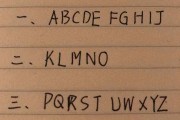 一、ABCDEFGHIJ
二、KLMNO
三、PQRST UWXYZ